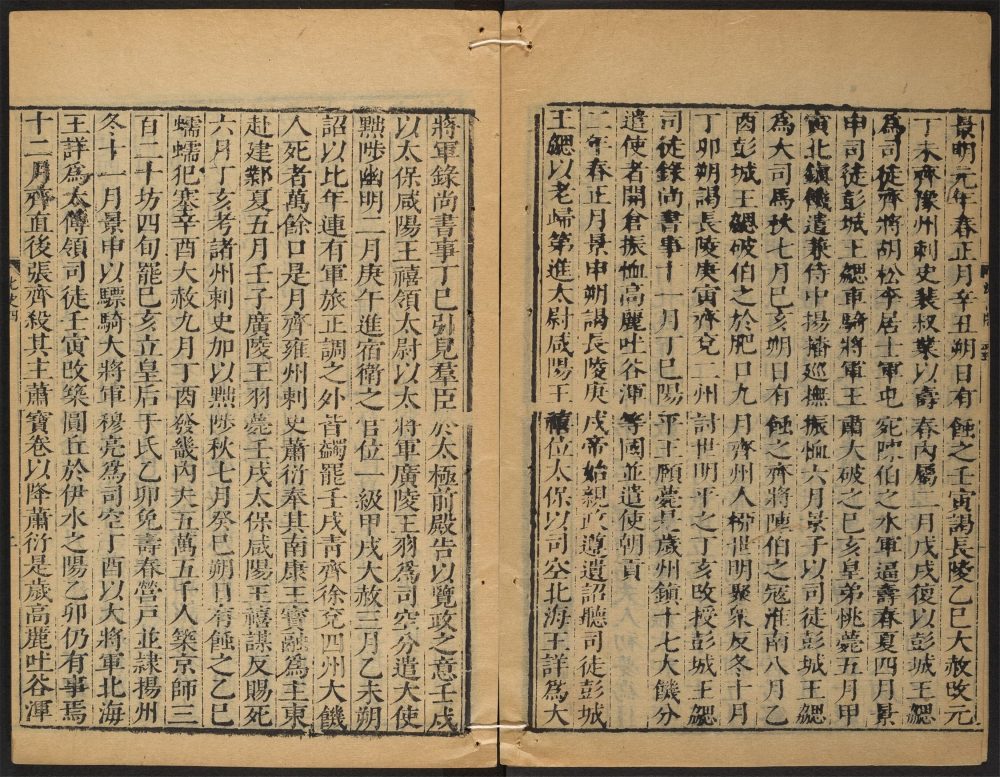 景明元年春正月辛丑朔日有蝕之壬寅謁長陵乙巳大赦改元
丁未齊豫州刺史裴叔業以壽春內屬二月戊戌復以彭城王勰
為司徒齊將胡松李居士軍屯宛陳伯之水軍逼壽春夏四月景
申司徒彭城王勰車騎將軍王肅大破之己亥皇弟恌薨五月甲
寅北鎮饑遣兼侍中揚播巡撫振恤六月景子以司徒彭城王勰
為大司馬秋七月己亥朔日有蝕之齊將陳伯之寇淮南八月乙
酉彭城王勰破伯之於肥口九月齊州人柳世明聚衆反冬十月
丁卯朔謁長陵庚寅齊兗二州討世明平之丁亥改授彭城王勰
司徒錄尚書事十一月丁巳陽平王頤薨其歲州鎮十七大饑分
遣使者開倉振恤高麗吐谷渾等國並遣使朝貢
二年春正月景申朔謁長陵庚戌帝始親政遵遺詔聽司徒彭城
王勰以老歸第進太尉咸陽王禧位太保以司空北海王詳為大
將軍錄尚書事丁巳引見羣臣於太極前殿告以覽政之意壬戌
以太保咸陽王禧領太尉以大將軍廣陵王羽為司空分遣大使
黜陟幽明二月庚午進宿衛之官位一級甲戌大赦三月乙未朔
詔以比年連有軍旅正調之外皆蠲罷壬戌青齊徐兗四州大饑
人死者萬餘口是月齊雍州刺史蕭衍奉其南康王寶融為主東
赴建鄴夏五月壬子廣陵王羽薨壬戌太保咸陽王禧謀反賜死
六月丁亥考諸州刺史加以黜陟秋七月癸巳朔日有蝕之乙巳
蠕蠕犯塞辛酉大赦九月丁酉發畿內夫五萬五千人築京師三
百二十坊四旬罷己亥立皇后于氏乙卯免壽春營戶並隸揚州
冬十一月景申以驃騎大將軍穆亮為司空丁酉以大將軍北海
王詳為太傅領司徒壬寅改築圓丘於伊水之陽乙卯仍有事焉
十二月齊直後張齊殺其主蕭寶卷以降蕭衍是歲高麗吐谷渾